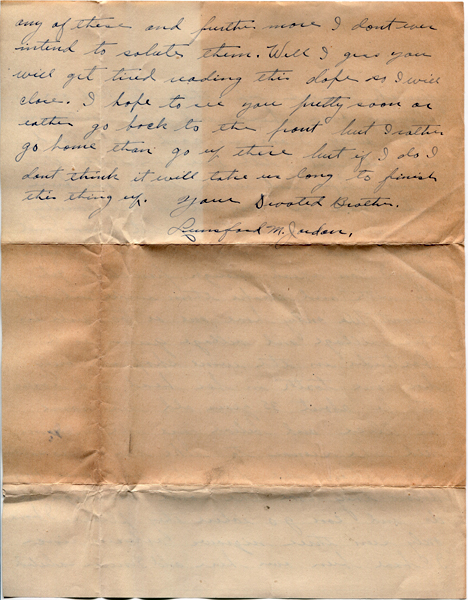 any of these and further more I dont ever
intend to salute them. Well I gess you
will get tired reading this dope so I will
close. I hope to see you pretty soon or
eather go back to the front but I rather
go home than go up there but if I do I
dont think it will take us long to finish
this thing up. Your Devoted Brother.
Lunsford M. Jordan.